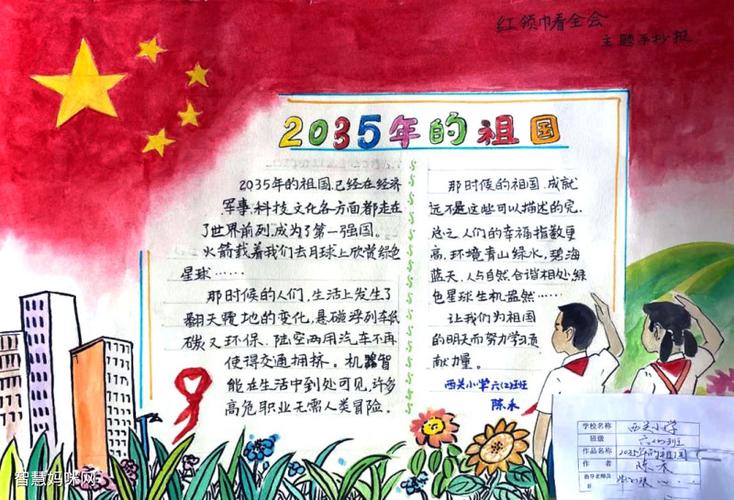 红领巾看全会
主题手抄报
2035年的祖国
2035年的祖国,已经在经济
军事,科技,文化各方面都走在
了世界前列,成为了第一强国。
火箭载着我们去月球上欣赏绿色
星球······
那时候的人们,生活上发生了
翻天覆地的变化,悬磁浮列车低
碳又环保,陆空两用汽车不再
使得交通拥挤。机器智
能在生活中到处可见,许多
高危职业无需人类冒险。
那时候的祖国,成就
远不是这些可以描述的完,
总之,人们的幸福指数更
高,环境青山绿水,碧海
蓝天,人与自然合谐相处,绿
色星球生机盎然······
让我们为祖国
的明天而努力学习,
献力量。
西关小学六(2)班
陈禾
学校名称 西关小学
班级 六(2)班
作品名称 2035年的祖国
作者 陈禾
指导老师
智慧妈咪网